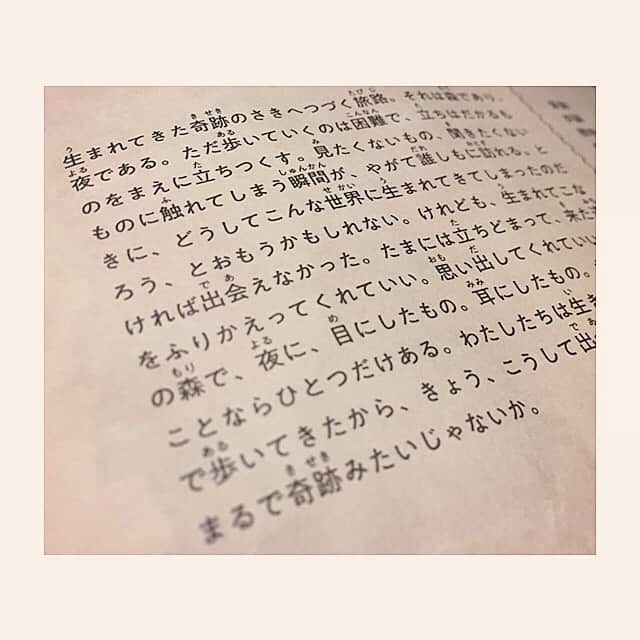 生まれてきた奇跡のさきへつづく旅路。それは森であり、
夜である。ただ歩いていくのは困難で、立ちはだかるも
のをまえに立ちつくす。見たくないもの、聞きたくない
ものに触れてしまう瞬間が、やがて誰しもに訪れる。と
きに、どうしてこんな世界に生まれてきてしまったのだ
ろう、とおもうかもしれない。けれども、生まれてこな
ければ出会えなかった。たまには立ちどまって、来た
をふりかえってくれていい。思い出してくれていい
の森で、夜に、目にしたもの。耳にしたもの。
ことならひとつだけある。わたしたちは生き
で歩いてきたから、きょう、こうして出
まるで奇跡みたいじゃないか。